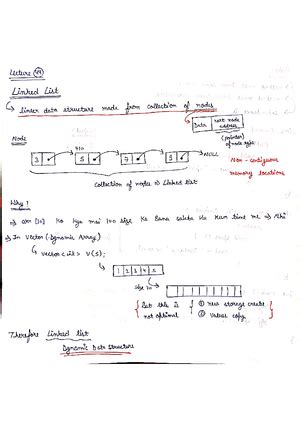 Lecture (44)
Linked List
↳ Linear data structure made from collection of nodes
Data | next node address
(pointer) of node type
Node
710
3 5 7 9 → NULL
Collection of nodes ⇒ Linked list
Non-contiguous memory locations
Why ?
⇒ arr [10] ko kya mai 100 size ka bana sakta Hu Run time me ⇒ Nhi
⇒ In Vector (Dynamic Array)
↳ vector<int> V(5);
1 2 3 4 5
size 10
{ But this is not optimal }
{ ① new storage create
② values copy }
Therefore Linked list
Dynamic Data Structure